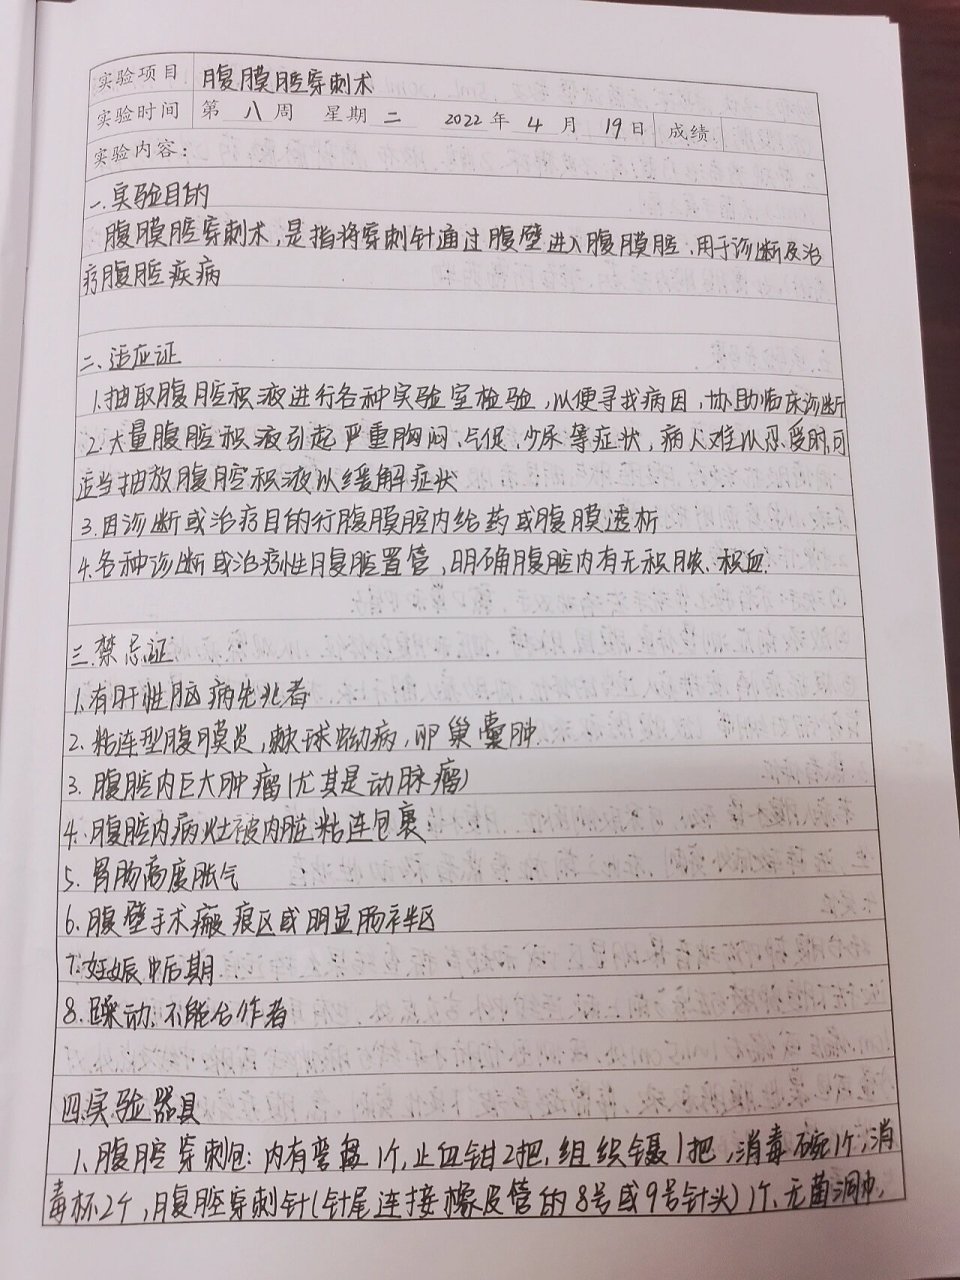 实验项目 腹膜腔穿刺术
实验时间 第 八 周 星期 二 2022 年 4 月 19 日 成绩
实验内容：
一.实验目的
腹膜腔穿刺术,是指将穿刺针通过腹壁进入腹膜腔,用于诊断及治
疗腹腔疾病
二、适应证
1.抽取腹腔积液进行各种实验室检验,以便寻找病因,协助临床诊断
2.大量腹腔积液引起严重胸闷、气促、少尿等症状,病人难以忍受时,可
适当抽放腹腔积液以缓解症状
3.因诊断或治疗目的行腹膜腔内给药或腹膜透析
4.各种诊断或治疗性腹腔置管,明确腹腔内有无积脓、积血.
三.禁忌证
1.有肝性脑病先兆者
2.粘连型腹膜炎,棘球蚴病,卵巢囊肿
3.腹腔内巨大肿瘤(尤其是动脉瘤)
4.腹腔内病灶被内脏粘连包裹
5.胃肠高度胀气
6.腹壁手术瘢痕区或明显肠袢区
7.妊娠中后期
8.躁动、不能合作者
四.实验器具
1.腹腔穿刺包:内有弯盘1个,止血钳2把,组织镊1把,消毒碗1个,消
毒杯2个,腹腔穿刺针(针尾连接橡皮管的8号或9号针头)1个、无菌洞巾,